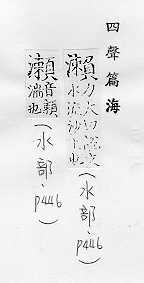 四聲篇海
瀨力大切湍瀨水流沙上也(水部、p446)
瀬音賴湍也(水部、p446)